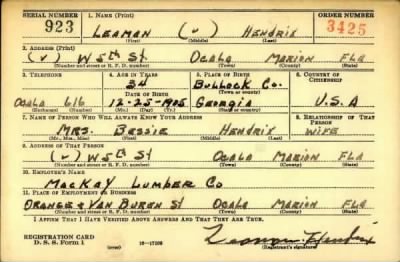 SERIAL NUMBER 1. NAME (Print) ORDER NUMBER
923 LEAMAN (v) HENDRIX 3425
(First) (Middle) (Last)
2. ADDRESS (Print)
(v) W 5th St OCALA MARION FLA
(Number and street or R. F. D. number) (Town) (County) (State)
3. TELEPHONE 4. AGE IN YEARS 5. PLACE OF BIRTH 6. COUNTRY OF CITIZENSHIP
34 BULLOCK Co.
DATE OF BIRTH (Town or county)
OCALA 616 12-25-1905 GEORGIA U.S.A
(Exchange) (Number) (Mo.) (Day) (Yr.) (State or country)
7. NAME OF PERSON WHO WILL ALWAYS KNOW YOUR ADDRESS 8. RELATIONSHIP OF THAT PERSON
MRS. BESSIE HENDRIX WIFE
(Mr., Mrs., Miss) (First) (Middle) (Last)
9. ADDRESS OF THAT PERSON
(v) W 5th St OCALA MARION FLA
(Number and street or R. F. D. number) (Town) (County) (State)
10. EMPLOYER'S NAME
MACKAY LUMBER CO
11. PLACE OF EMPLOYMENT OR BUSINESS
ORANGE & VAN BUREN ST OCALA MARION FLA
(Number and street or R. F. D. number) (Town) (County) (State)
I AFFIRM THAT I HAVE VERIFIED ABOVE ANSWERS AND THAT THEY ARE TRUE.
REGISTRATION CARD
D. S. S. Form 1 (over) 16—17105 Leaman Hendrix
(Registrant's signature)